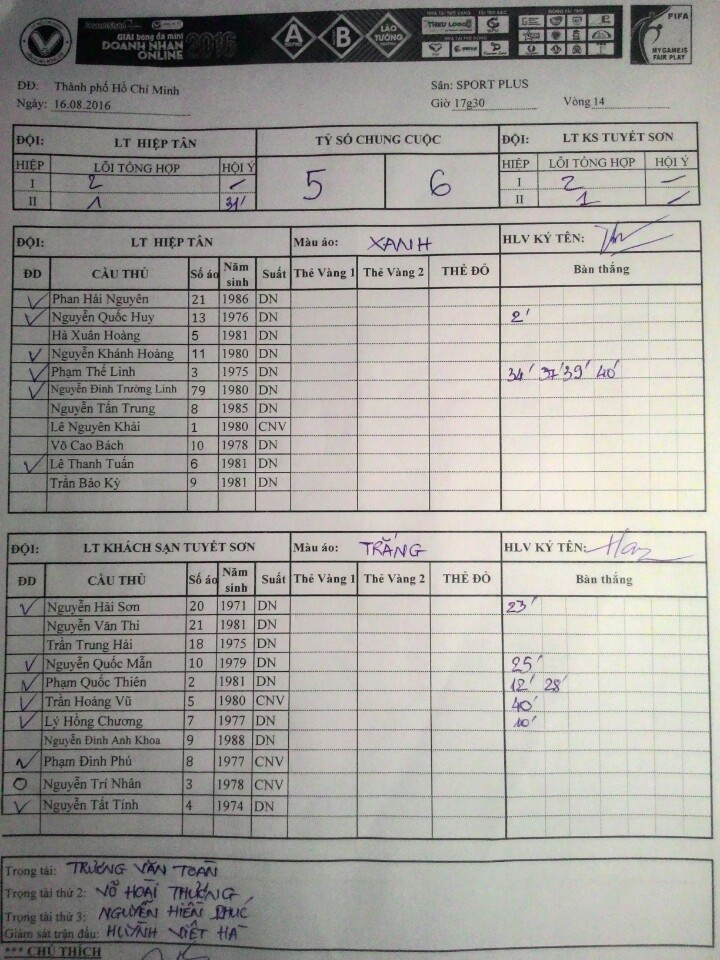 GIẢI bóng đá mini
DOANH NHÂN 2016
ONLINE
A B LÀO TƯỞNG
THIEU LOGO
FIFA
MY GAME IS
FAIR PLAY
ĐĐ: Thành phố Hồ Chí Minh Sân: SPORT PLUS
Ngày: 16.08.2016 Giờ 17g30 Vòng 14
ĐỘI: LT HIỆP TÂN TỶ SỐ CHUNG CUỘC ĐỘI: LT KS TUYẾT SƠN
HIỆP LỖI TỔNG HỢP HỘI Ý 5 6 HIỆP LỖI TỔNG HỢP HỘI Ý
I 2 - I 2 -
II 1 31' II 1 -
ĐỘI: LT HIỆP TÂN Màu áo: XANH HLV KÝ TÊN:
ĐD CẦU THỦ Số áo Năm sinh Suất Thẻ Vàng 1 Thẻ Vàng 2 THẺ ĐỎ Bàn thắng
✓ Phan Hải Nguyên 21 1986 DN
✓ Nguyễn Quốc Huy 13 1976 DN 2'
Hà Xuân Hoàng 5 1981 DN
✓ Nguyễn Khánh Hoàng 11 1980 DN
✓ Phạm Thế Linh 3 1975 DN 34' 37' 39' 40'
✓ Nguyễn Đình Trường Linh 79 1980 DN
Nguyễn Tấn Trung 8 1985 DN
Lê Nguyên Khải 1 1980 CNV
Võ Cao Bách 10 1978 DN
✓ Lê Thanh Tuấn 6 1981 DN
Trần Bảo Kỳ 9 1981 DN
ĐỘI: LT KHÁCH SẠN TUYẾT SƠN Màu áo: TRẮNG HLV KÝ TÊN:
ĐD CẦU THỦ Số áo Năm sinh Suất Thẻ Vàng 1 Thẻ Vàng 2 THẺ ĐỎ Bàn thắng
✓ Nguyễn Hải Sơn 20 1971 DN 23'
Nguyễn Văn Thi 21 1981 DN
Trần Trung Hải 18 1975 DN
✓ Nguyễn Quốc Mẫn 10 1979 DN 25'
✓ Phạm Quốc Thiên 2 1981 DN 12' 28'
✓ Trần Hoàng Vũ 5 1980 CNV 40'
✓ Lý Hồng Chương 7 1977 DN 10'
Nguyễn Đình Anh Khoa 9 1988 DN
✓ Phạm Đình Phú 8 1977 CNV
O Nguyễn Trí Nhân 3 1978 CNV
✓ Nguyễn Tất Tính 4 1974 DN
Trọng tài: TRƯƠNG VĂN TOÀN
Trọng tài thứ 2: VÕ HOÀI THƯƠNG
Trọng tài thứ 3: NGUYỄN HIỀN PHÚC
Giám sát trận đấu: HUỲNH VIỆT HÀ
*** CHÚ THÍCH